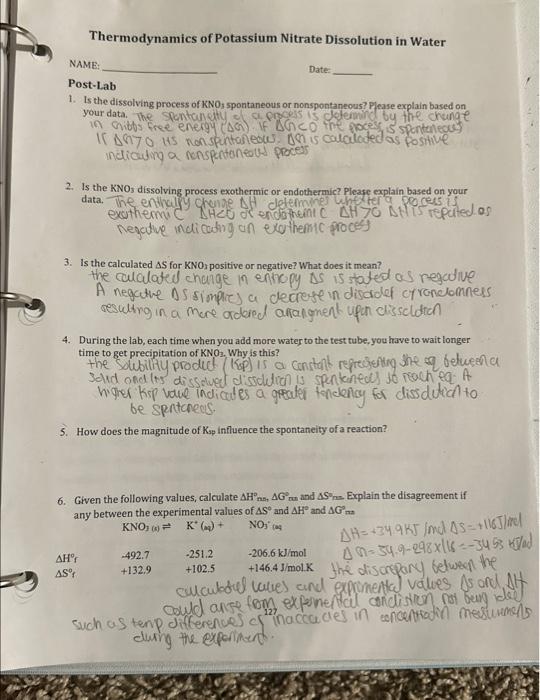 Thermodynamics of Potassium Nitrate Dissolution in Water
NAME:
Date:
Post-Lab
1. Is the dissolving process of KNO₃ spontaneous or nonspontaneous? Please explain based on
your data. The spontaneity of a process is determind by the change
in Gibbs free energy (ΔG). If ΔG<0 the process is spontaneous
If ΔG>0 its nonspontaneous. ΔG is calculated as positive
indicating a nonspontaneous process
2. Is the KNO₃ dissolving process exothermic or endothermic? Please explain based on your
data. The enthalpy change ΔH determines whether a process is
exothermic ΔH<0 or endothermic ΔH>0 ΔH is reputed as
negative indicating an exothermic process
3. Is the calculated ΔS for KNO₃ positive or negative? What does it mean?
the calculated change in entropy ΔS is stated as negative
A negative ΔS implies a decrease in disorder or randomness
resulting in a more ordered arrangment upon
4. During the lab, each time when you add more water to the test tube, you have to wait longer
time to get precipitation of KNO₃. Why is this?
the solubility product (Ksp) is a constant representing the eq between a
solid and its dissolved is spontaneous to reach eq. A
higher Ksp value indicates a greater tendency for dissolution to
be spontaneous.
5. How does the magnitude of Ksp influence the spontaneity of a reaction?
6. Given the following values, calculate ΔH°rxn, ΔG°rxn and ΔS°rxn. Explain the disagreement if
any between the experimental values of ΔS° and ΔH° and ΔG°rxn
KNO₃ (s) ⇌ K⁺ (aq) + NO₃⁻ (aq)
ΔH=+34.9KJ/mol ΔS=+116J/mol
ΔG=34.9-298x116=-34.53 KJ/mol
ΔH°f -492.7 -251.2 -206.6 kJ/mol
ΔS°f +132.9 +102.5 +146.4 J/mol.K
the discrepancy between the
calculated values and exprimental values ΔS and ΔH
could arise from experimental condistion not being ideal
such as temp differences of inaccuracies in concentration mesurements
during the experiment.
127